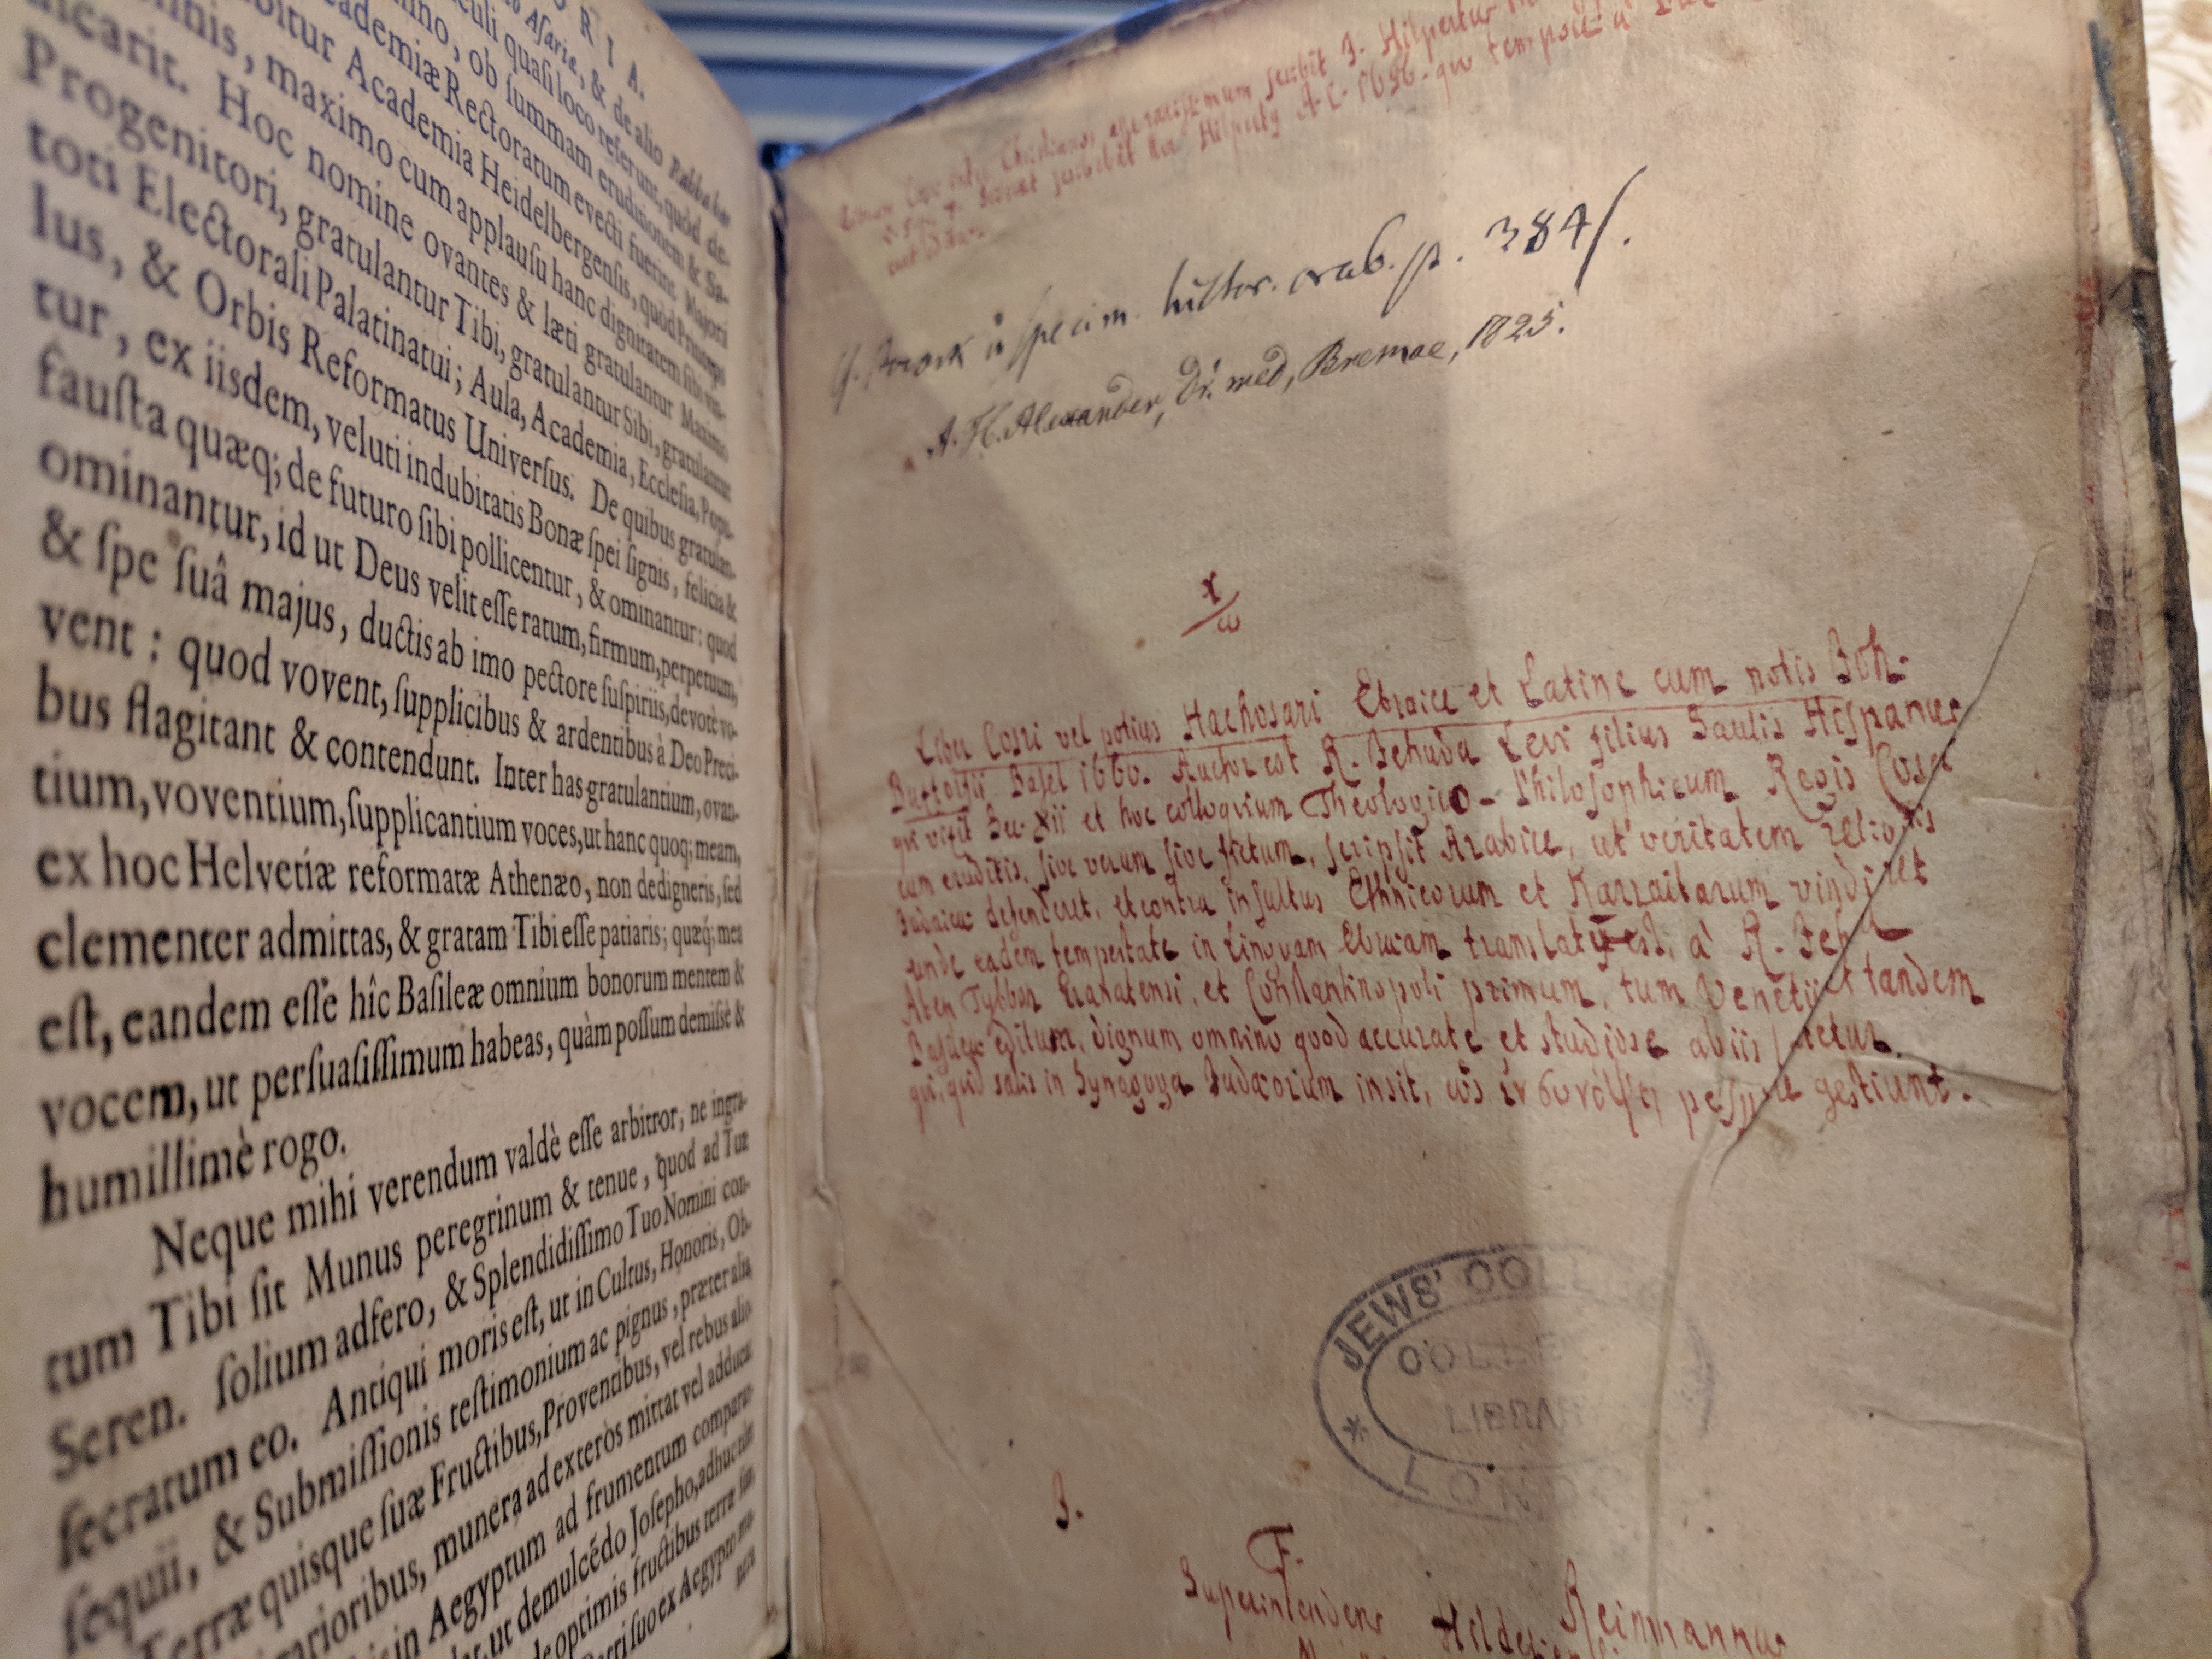 ORIA.
Asariæ, & de alio Rabba
culi quasi loco referunt, quòd de-
nno, ob summam eruditionem & Sa-
ademiæ Rectoratum evecti fuerint. Majori
bitur Academia Heidelbergensis, quòd Princeps
mnis, maximo cum applausu hanc dignitatem sibi
icarit. Hoc nomine ovantes & læti gratulantur Maximo
Progenitori, gratulantur Tibi, gratulantur Sibi, gratulantur
toti Electorali Palatinatui; Aula, Academia, Ecclesia, Popu-
lus, & Orbis Reformatus Universus. De quibus gratulan-
tur, ex iisdem, veluti indubitatis Bonæ spei signis, felicia &
fausta quæq; de futuro sibi pollicentur, & ominantur: quod
ominantur, id ut Deus velit esse ratum, firmum, perpetuum,
& spe suâ majus, ductis ab imo pectore suspiriis, devotè vo-
vent: quod vovent, supplicibus & ardentibus à Deo Preci-
bus flagitant & contendunt. Inter has gratulantium, ovan-
tium, voventium, supplicantium voces, ut hanc quoq; meam,
ex hoc Helvetiæ reformatæ Athenæo, non dedigneris, sed
clementer admittas, & gratam Tibi esse patiaris; quæq; mea
est, eandem esse hîc Basileæ omnium bonorum mentem &
vocem, ut persuasissimum habeas, quàm possum demissè &
humillimè rogo.
Neque mihi verendum valdè esse arbitror, ne ingra-
tum Tibi sit Munus peregrinum & tenue, quod ad Tuæ
Seren. solium adfero, & Splendidissimo Tuo Nomini con-
secratum eo. Antiqui moris est, ut in Cultus, Honoris, Ob-
sequii, & Submissionis testimonium ac pignus, præter alia
Terræ quisque suæ Fructibus, Proventibus, vel rebus aliis
rarioribus, munera ad exteros mittat vel adducat
is in Aegyptum ad frumentum comparan
ut demulcēdo Josepho, adhuc
de optimis fructibus terræ suæ
Patri suo ex Aegypto
Christianos esse rarissimum scribit J. Hilpertus
scribebat Hilpertus A. C. 1696. quo tempore
specim. histor. arab. p. 384/.
A. H. Alexander, Dr. med, Bremae, 1825.
Liber Cosri vel potius Hachosari Ebraice et Latine cum notis Joh.
Buxtorfii Basel 1660. Auctor est R. Jehuda Levi filius Saulis Hispanus
qui vixit Sec. Xii et hoc colloqvium Theologico-Philosophicum Regis Cosri
cum eruditis, sive verum sive fictum, scripsit Arabice, ut veritatem religionis
Judaicæ defenderet, et contra insultus Ethnicorum et Karraitarum vindicaret
unde eadem tempestate in Linqvam Ebræam translatum est, à R. Jehuda
Aben Tybbon Granatensi, et Constantinopoli primum, tum Venetiis et tandem
Basileæ editum, dignum omnino quod accurate et studiose ab iis
qui, quid salis in Synagoga Judæorum insit, gestiunt.
JEWS' COLL
COLLE
LIBRAR
LOND
J.
F.
Reimmannus
Superintendens